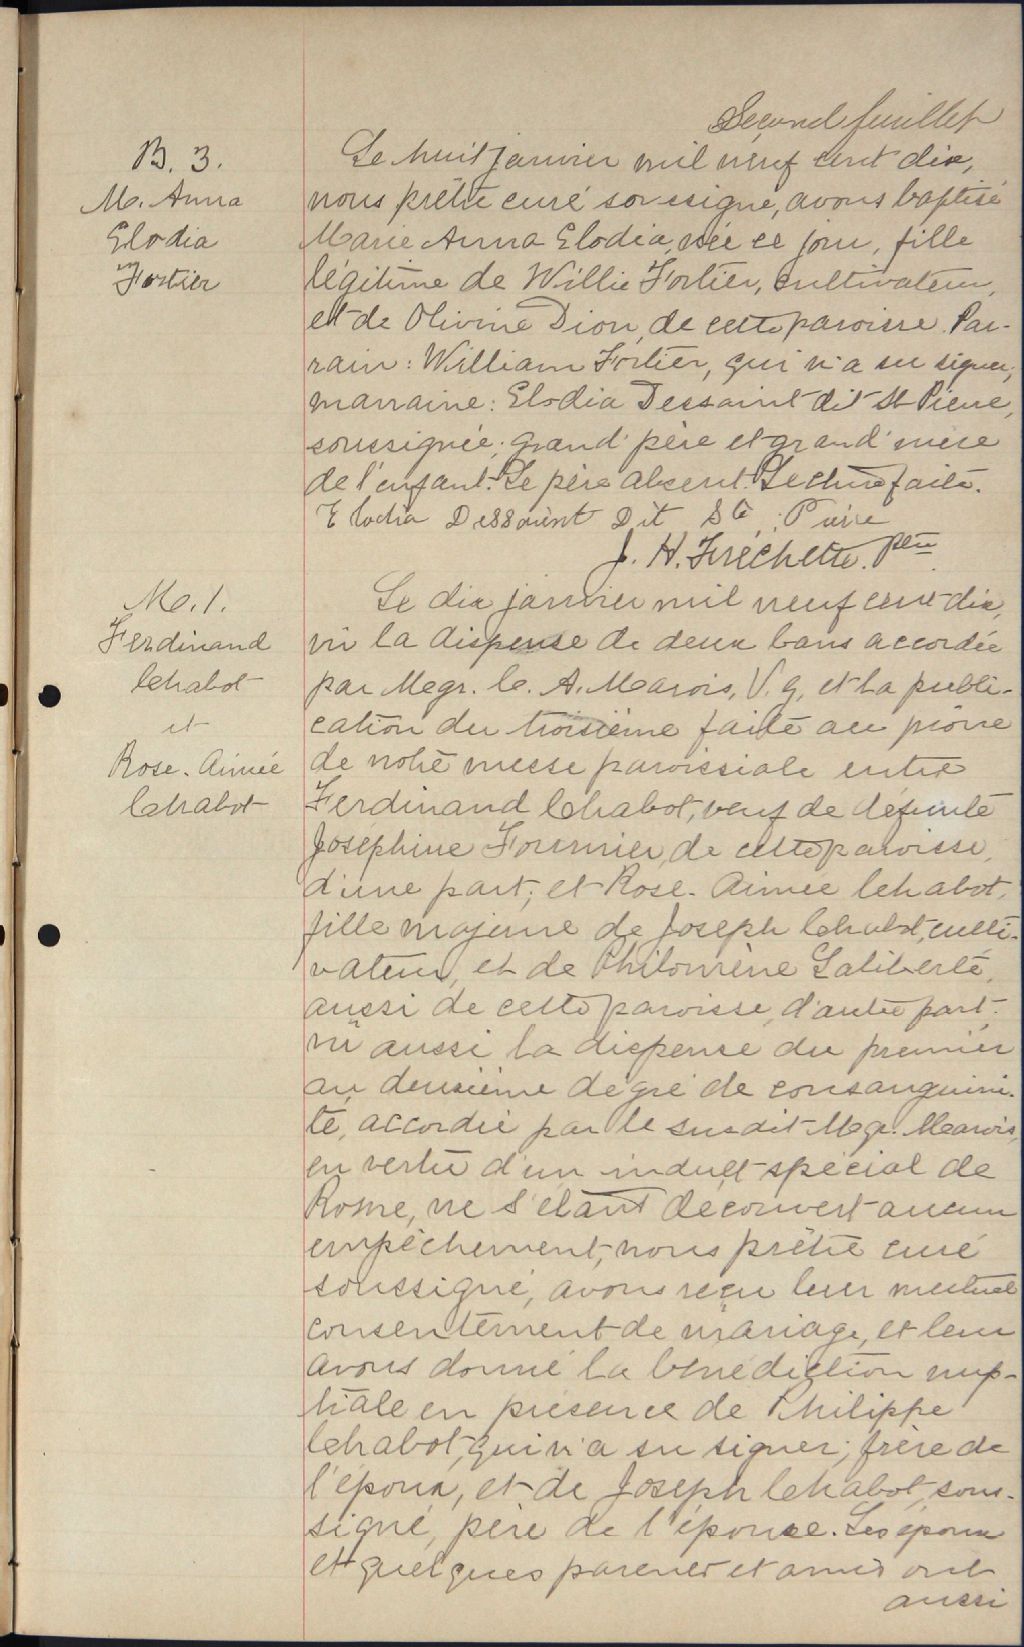 Second feuillet
B. 3.
M. Anna
Elodia
Fortier
Le huit janvier mil neuf cent dix,
nous prêtre curé soussigné, avons baptisé
Marie Anna Elodia, née ce jour, fille
légitime de Willie Fortier, cultivateur,
et de Olivine Dion, de cette paroisse. Par-
rain: William Fortier, qui n'a su signer;
marraine: Elodia Dessaint dit St Pierre,
soussignée; grand'père et grand'mère
de l'enfant. Le père absent. Lecture faite.
Elodia Dessaint Dit Ste Pierre
J. H. Fréchette. Ptre
M. 1.
Ferdinand
Chabot
et
Rose-Aimée
Chabot
Le dix janvier mil neuf cent dix,
vu la dispense de deux bans accordée
par Mgr. C. A. Marois, V. g, et la publi-
cation du troisième faite au prône
de notre messe paroissiale entre
Ferdinand Chabot, veuf de défunte
Joséphine Fournier, de cette paroisse,
d'une part; et Rose-Aimée Chabot,
fille majeure de Joseph Chabot, culti-
vateur, et de Philomène Laliberté,
aussi de cette paroisse, d'autre part;
vu aussi la dispense du premier
au deuxième degré de consanguini-
té, accordée par le susdit Mgr. Marois,
en vertu d'un indult spécial de
Rome, ne s'étant découvert aucun
empêchement, nous prêtre curé
soussigné, avons reçu leur mutuel
consentement de mariage, et leur
avons donné la bénédiction nup-
tiale en présence de Philippe
Chabot, qui n'a su signer, frère de
l'époux, et de Joseph Chabot, sous-
signé, père de l'épouse. Les époux
et quelques parents et amis ont
aussi